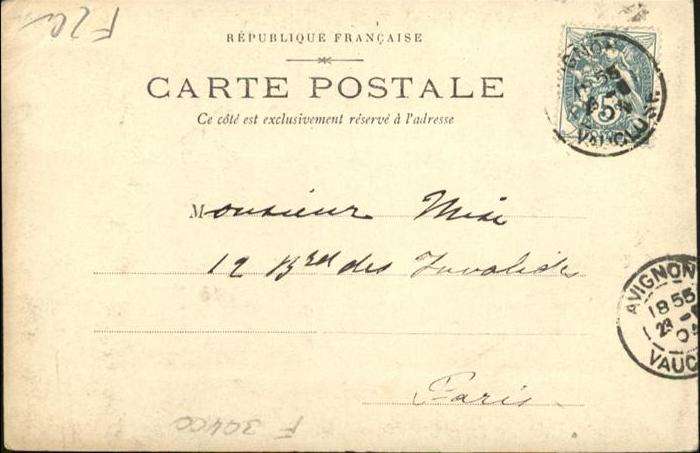 F 2a
RÉPUBLIQUE FRANÇAISE
CARTE POSTALE
Ce côté est exclusivement réservé à l'adresse
AVIGNON
18 55
5
VAUCLUSE
Monsieur
12 Brd des Invalides
AVIGNON
18 55
VAUC
Paris
F 30400